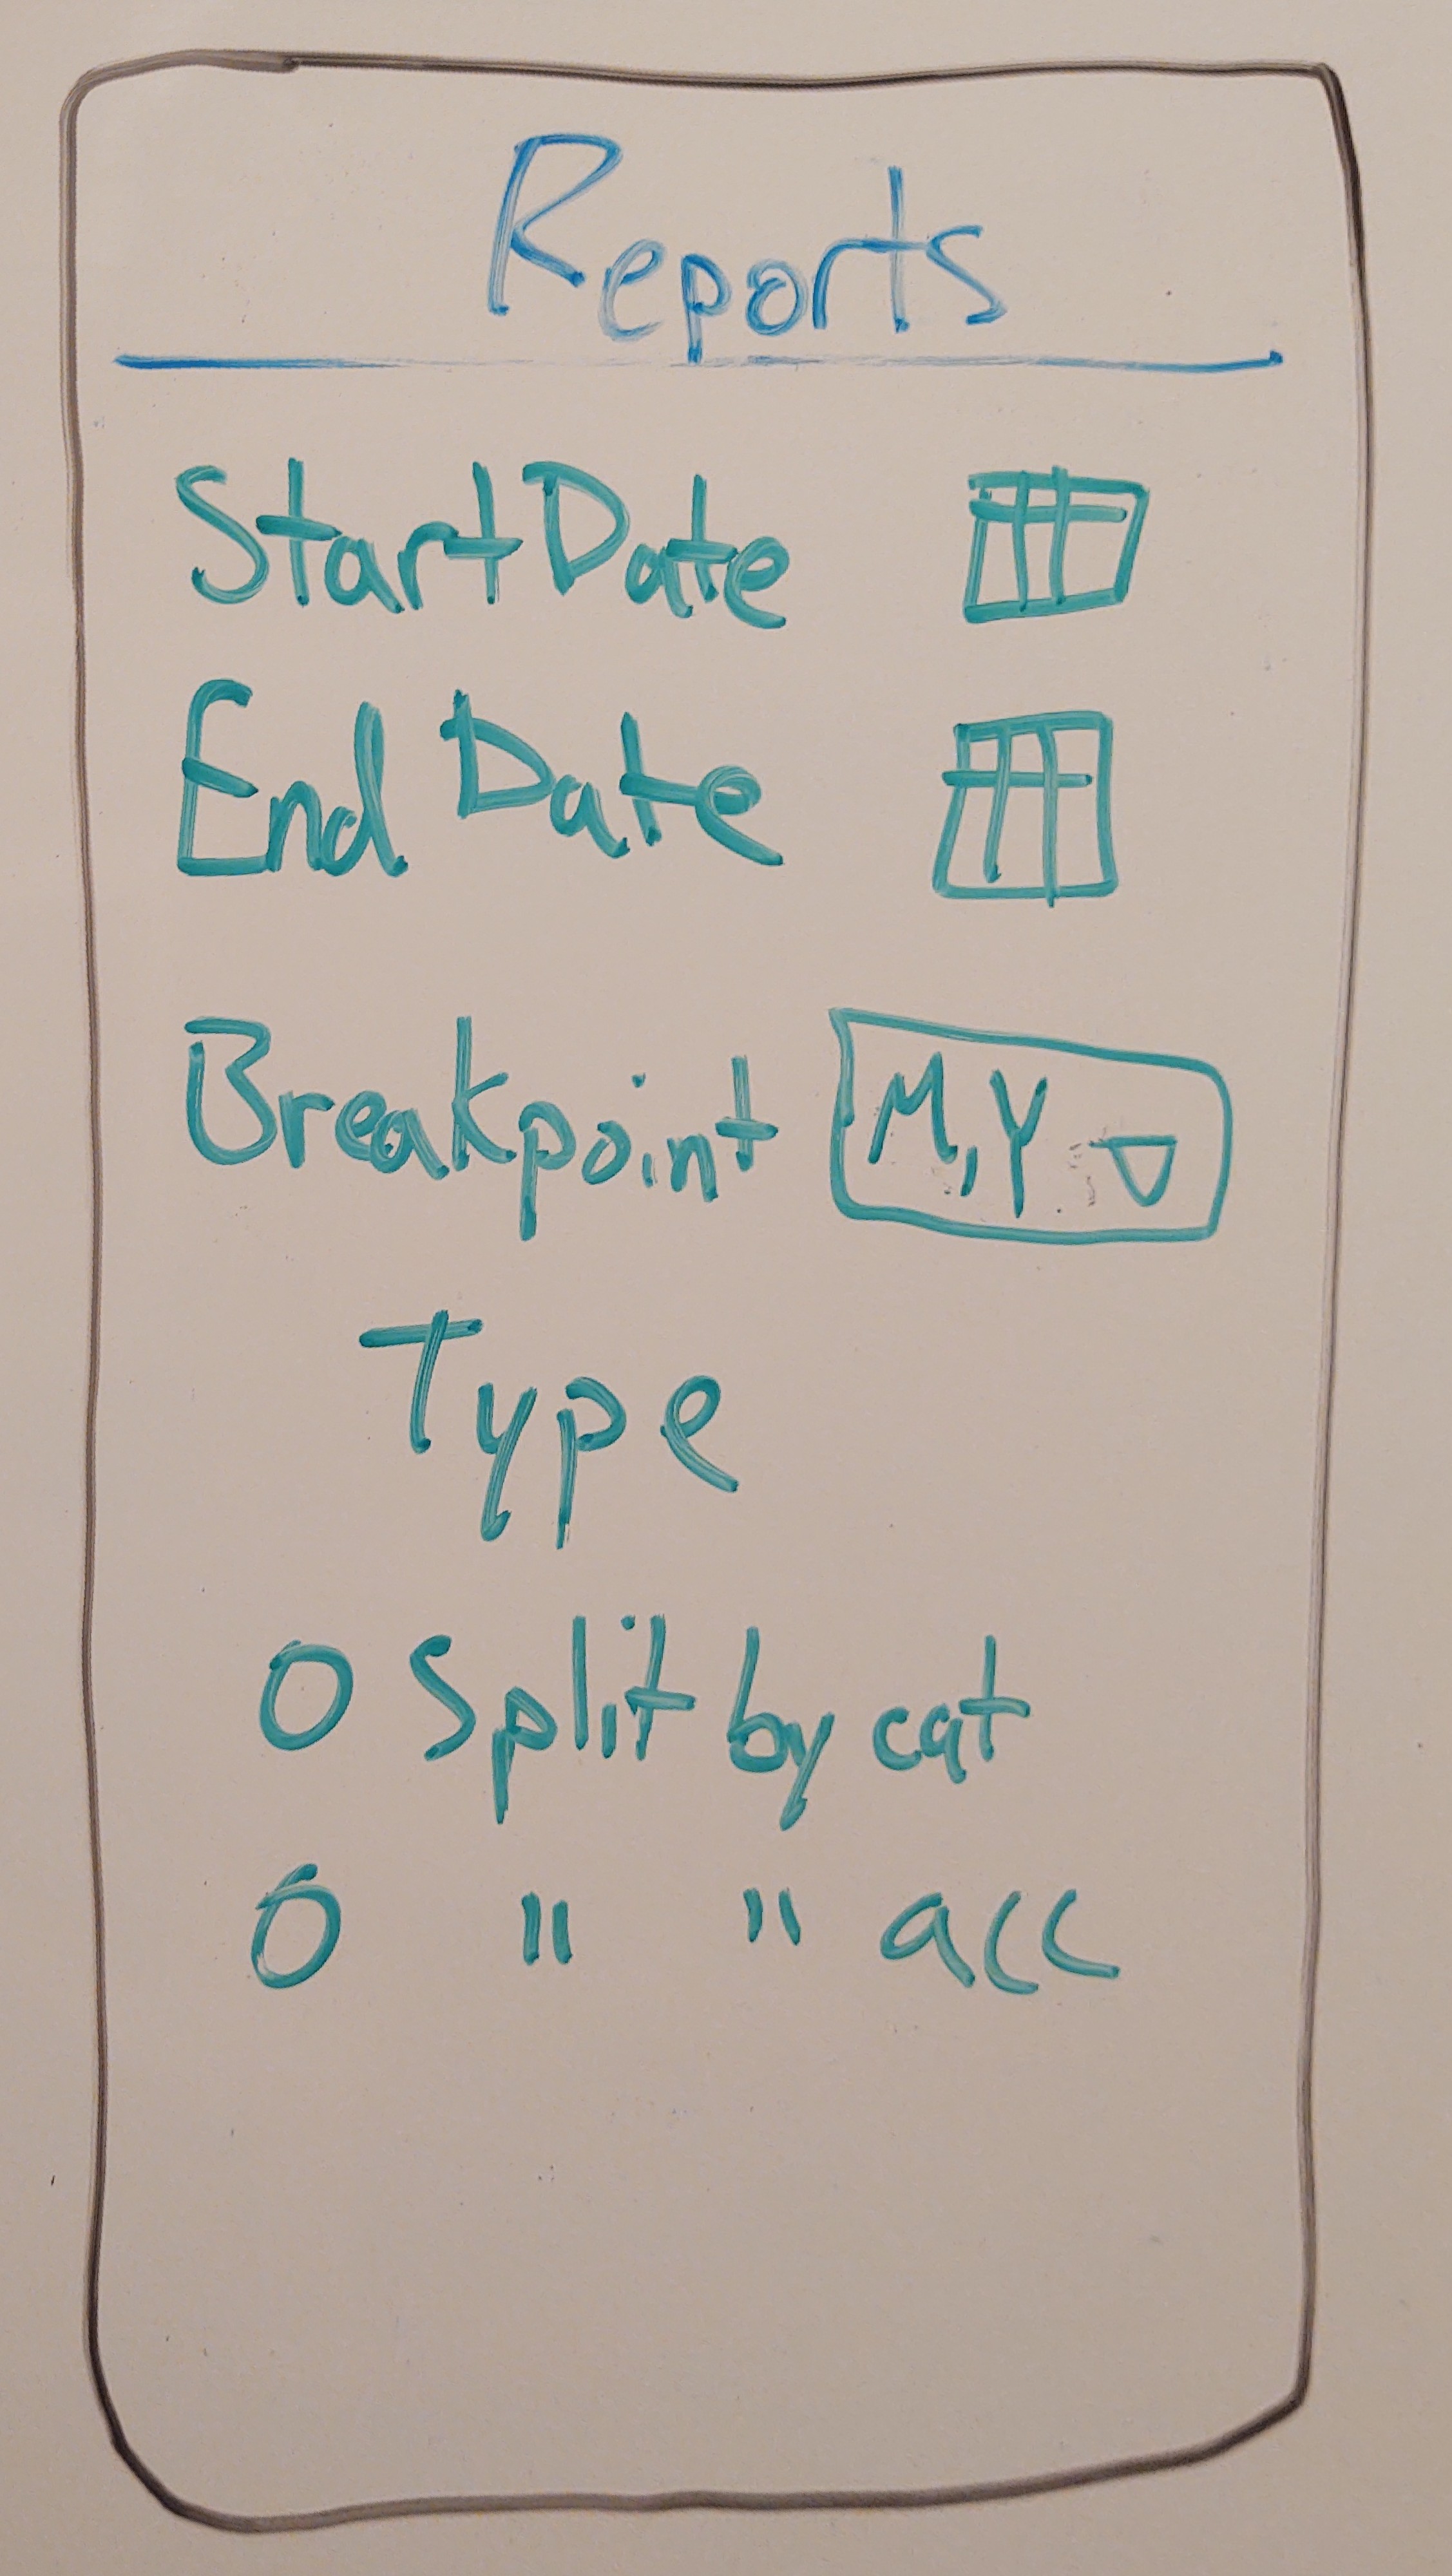 Reports
Start Date
End Date
Breakpoint M,Y
Type
Split by cat
" " acc